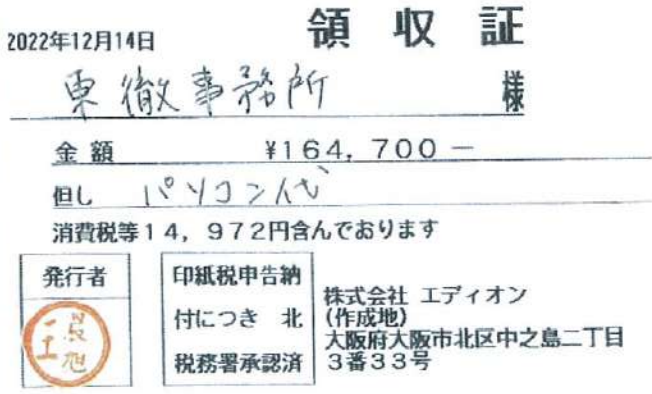 領収証
2022年12月14日
東徹事務所 様
金額 ¥164,700－
但し パソコン代
消費税等14,972円含んでおります
発行者
印紙税申告納
付につき 北
税務署承認済
株式会社 エディオン
(作成地)
大阪府大阪市北区中之島二丁目
3番33号